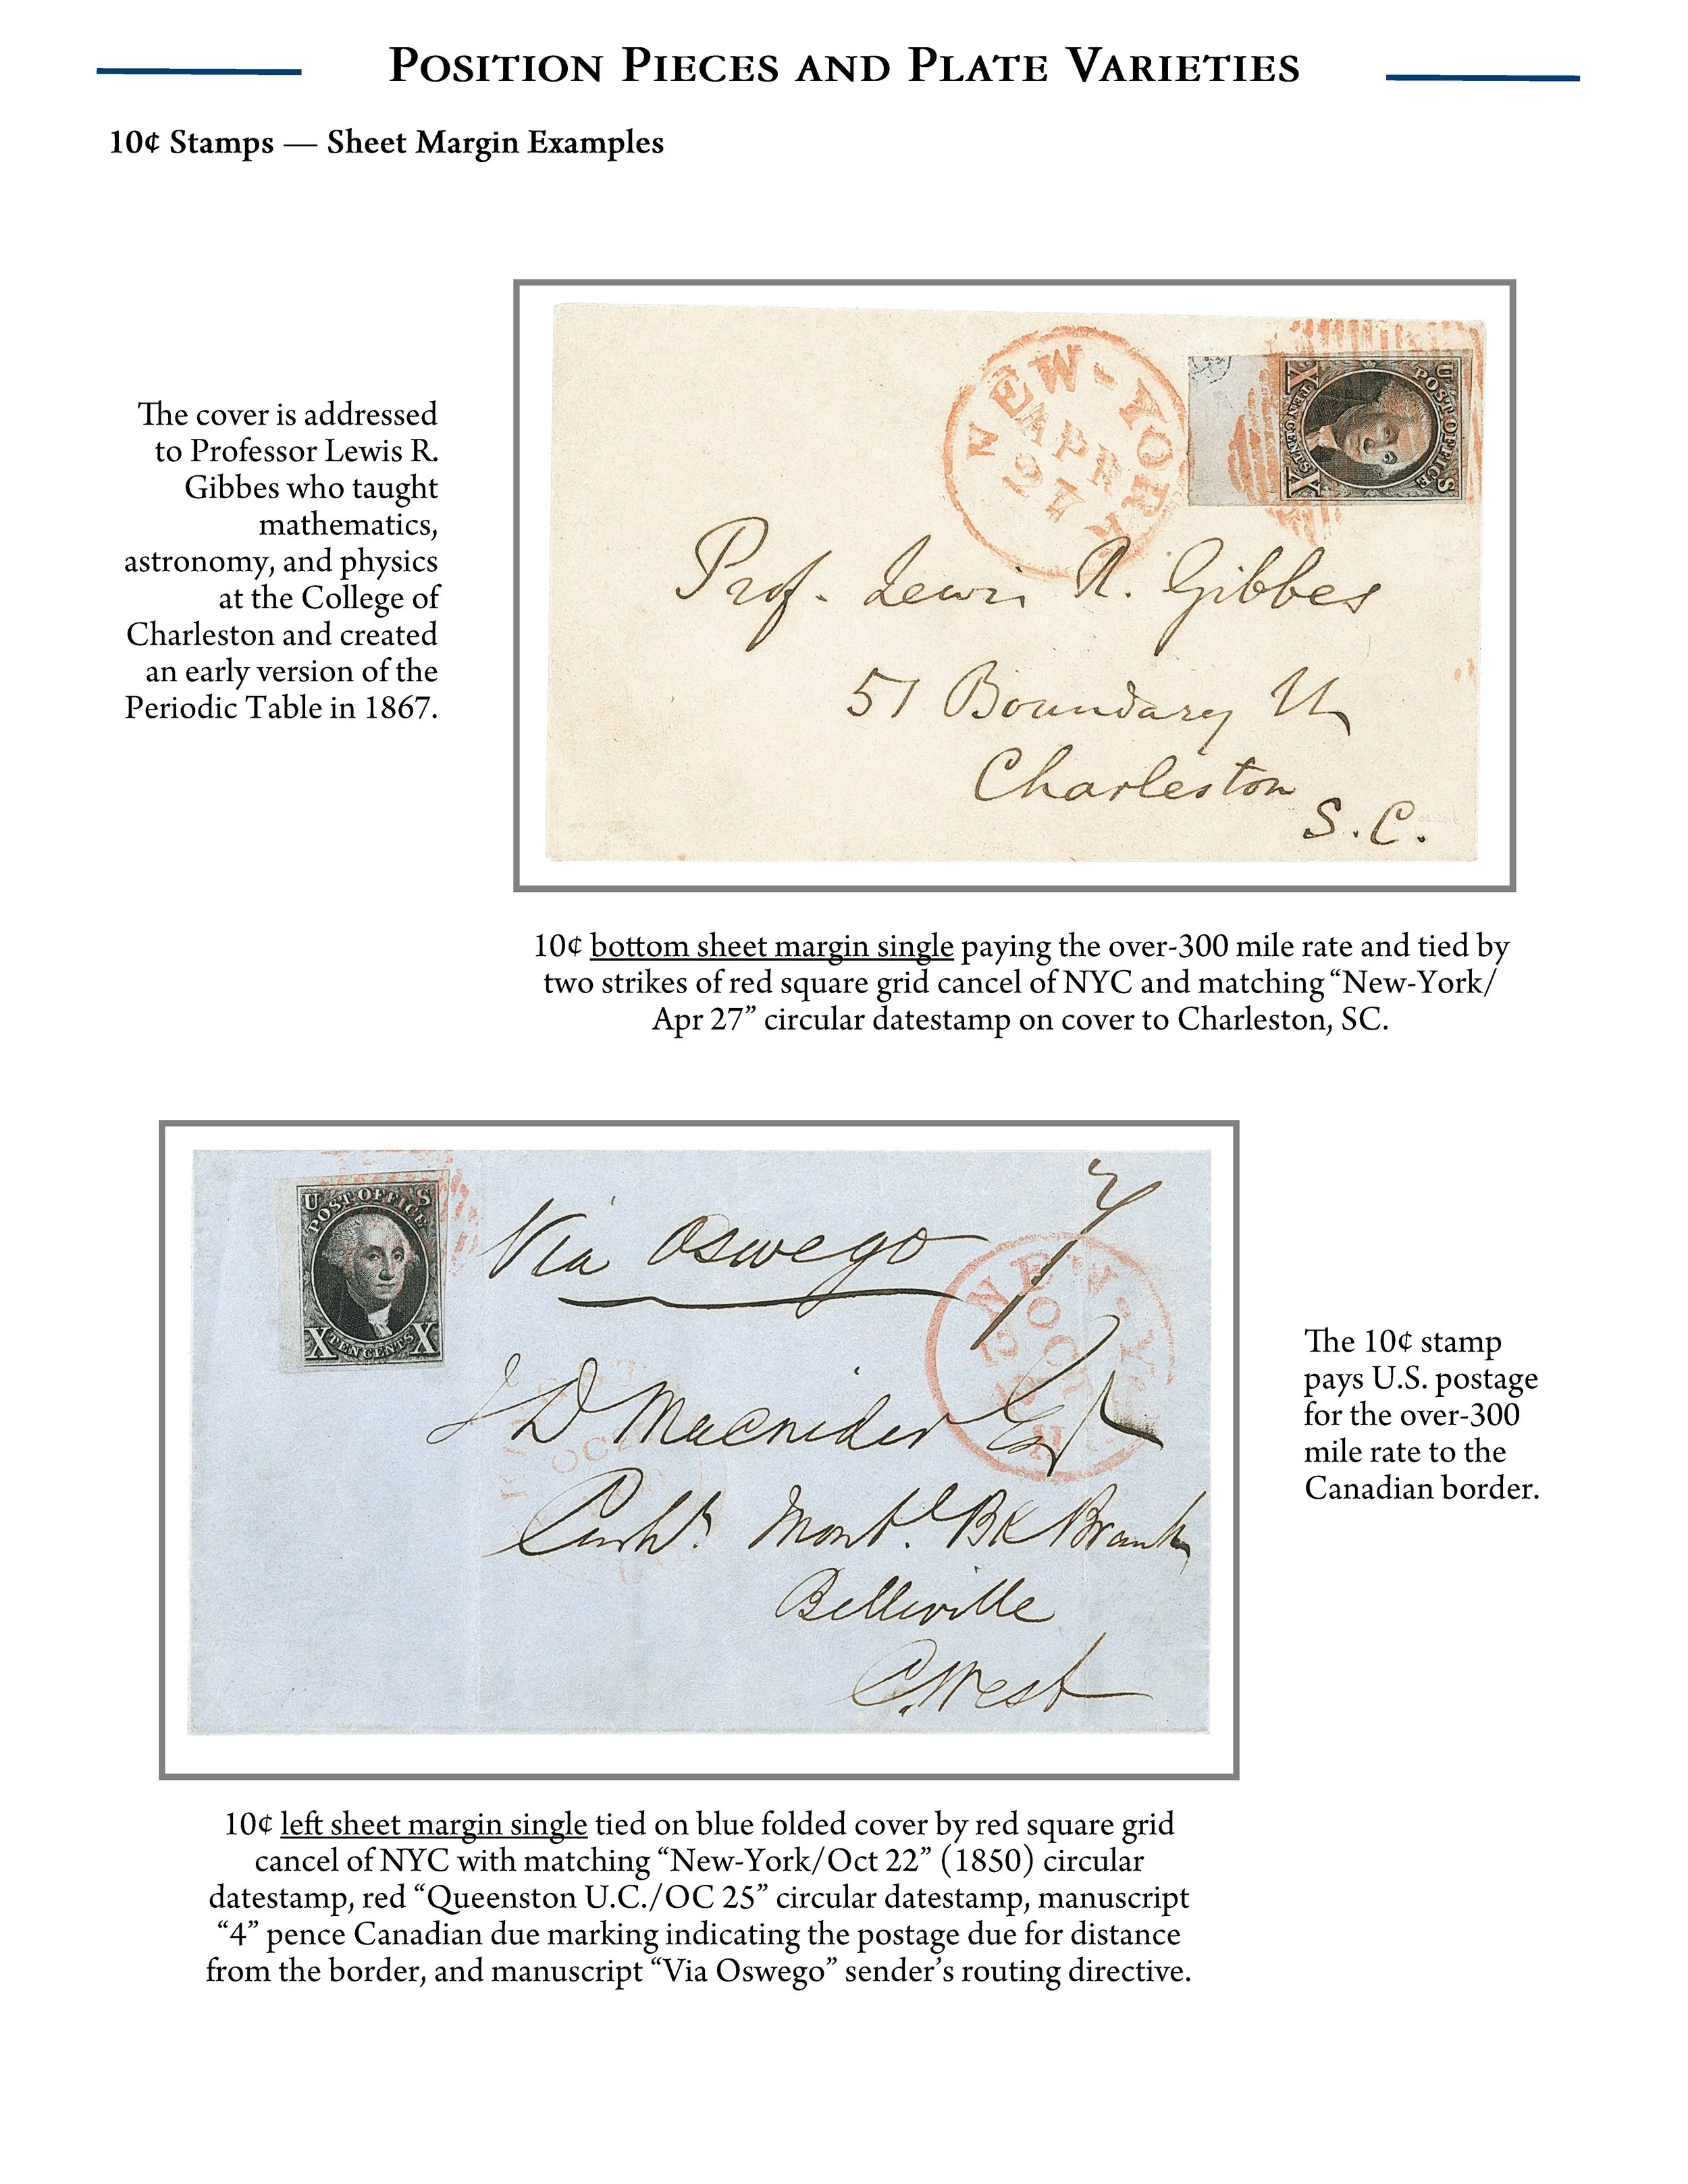 Position Pieces and Plate Varieties
10¢ Stamps — Sheet Margin Examples
The cover is addressed
to Professor Lewis R.
Gibbes who taught
mathematics,
astronomy, and physics
at the College of
Charleston and created
an early version of the
Periodic Table in 1867.
NEW-YORK
APR
27
POST OFFICE
U S
X TEN CENTS X
Prof. Lewis R. Gibbes
51 Boundary St
Charleston
S.C.
10¢ bottom sheet margin single paying the over-300 mile rate and tied by
two strikes of red square grid cancel of NYC and matching “New-York/
Apr 27” circular datestamp on cover to Charleston, SC.
U S
POST OFFICE
X TEN CENTS X
Via Oswego
4
NEW-Y
OCT
22
J D Macnider Esq
Cashr. Montl. Bk Branch
Belleville
C. West
The 10¢ stamp
pays U.S. postage
for the over-300
mile rate to the
Canadian border.
10¢ left sheet margin single tied on blue folded cover by red square grid
cancel of NYC with matching “New-York/Oct 22” (1850) circular
datestamp, red “Queenston U.C./OC 25” circular datestamp, manuscript
“4” pence Canadian due marking indicating the postage due for distance
from the border, and manuscript “Via Oswego” sender’s routing directive.